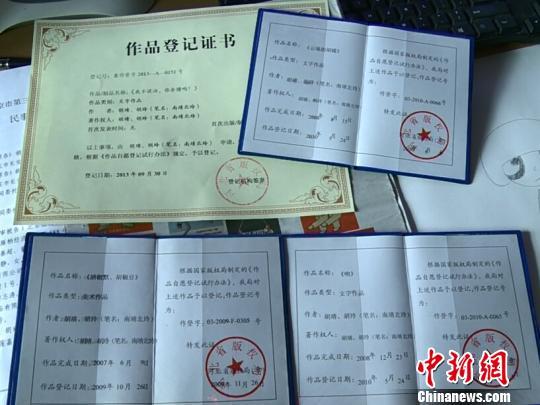 作品登记证书
登记号:冀作登字2013-A-0251号
作品/制品名称:《我不说话,你会懂吗》
作品类别:文字作品
作者:胡靖、胡玲(笔名:南靖北玲)
著作权人:胡靖、胡玲(笔名:南靖北玲)
首次发表时间:无
首次出版/制
以上事项,由 胡靖、胡玲(笔名:南靖北玲) 申请,
核,根据《作品自愿登记试行办法》规定,予以登记。
登记日期:2013年09月30日
登记机构签章
作品类型:文字作品
作品登记日期:
24日
根据国家版权局制定的《作
品自愿登记试行办法》,我局
对上述作品予以登记,作品登记
号为:
作登字:
03-2010-A-0066号
特发此证
作品名称:《胡椒默、胡椒豆》
作品类型:美术作品
作者:胡靖、胡玲(笔名:南靖北玲)
著作权人:胡靖、胡玲(笔名:南靖北玲)
作品完成日期:2007年6月9日
作品登记日期:2009年10月26日
根据国家版权局制定的《作
品自愿登记试行办法》,我局对
上述作品予以登记,作品登记号
为:
作登字:
03-2009-F-0305号
特发此证
2009年11月26日
作品名称:《吻》
作品类型:文字作品
作者:胡靖、胡玲(笔名:南靖北玲)
著作权人:胡靖、胡玲(笔名:南靖北玲)
作品完成日期:2008年12月23日
作品登记日期:2010年5月24日
根据国家版权局制定的《作
品自愿登记试行办法》,我局对
上述作品予以登记,作品登记号
为:
作登字:
03-2010-A-0065号
特发此证
省版权
中新网
www.chinanews.com